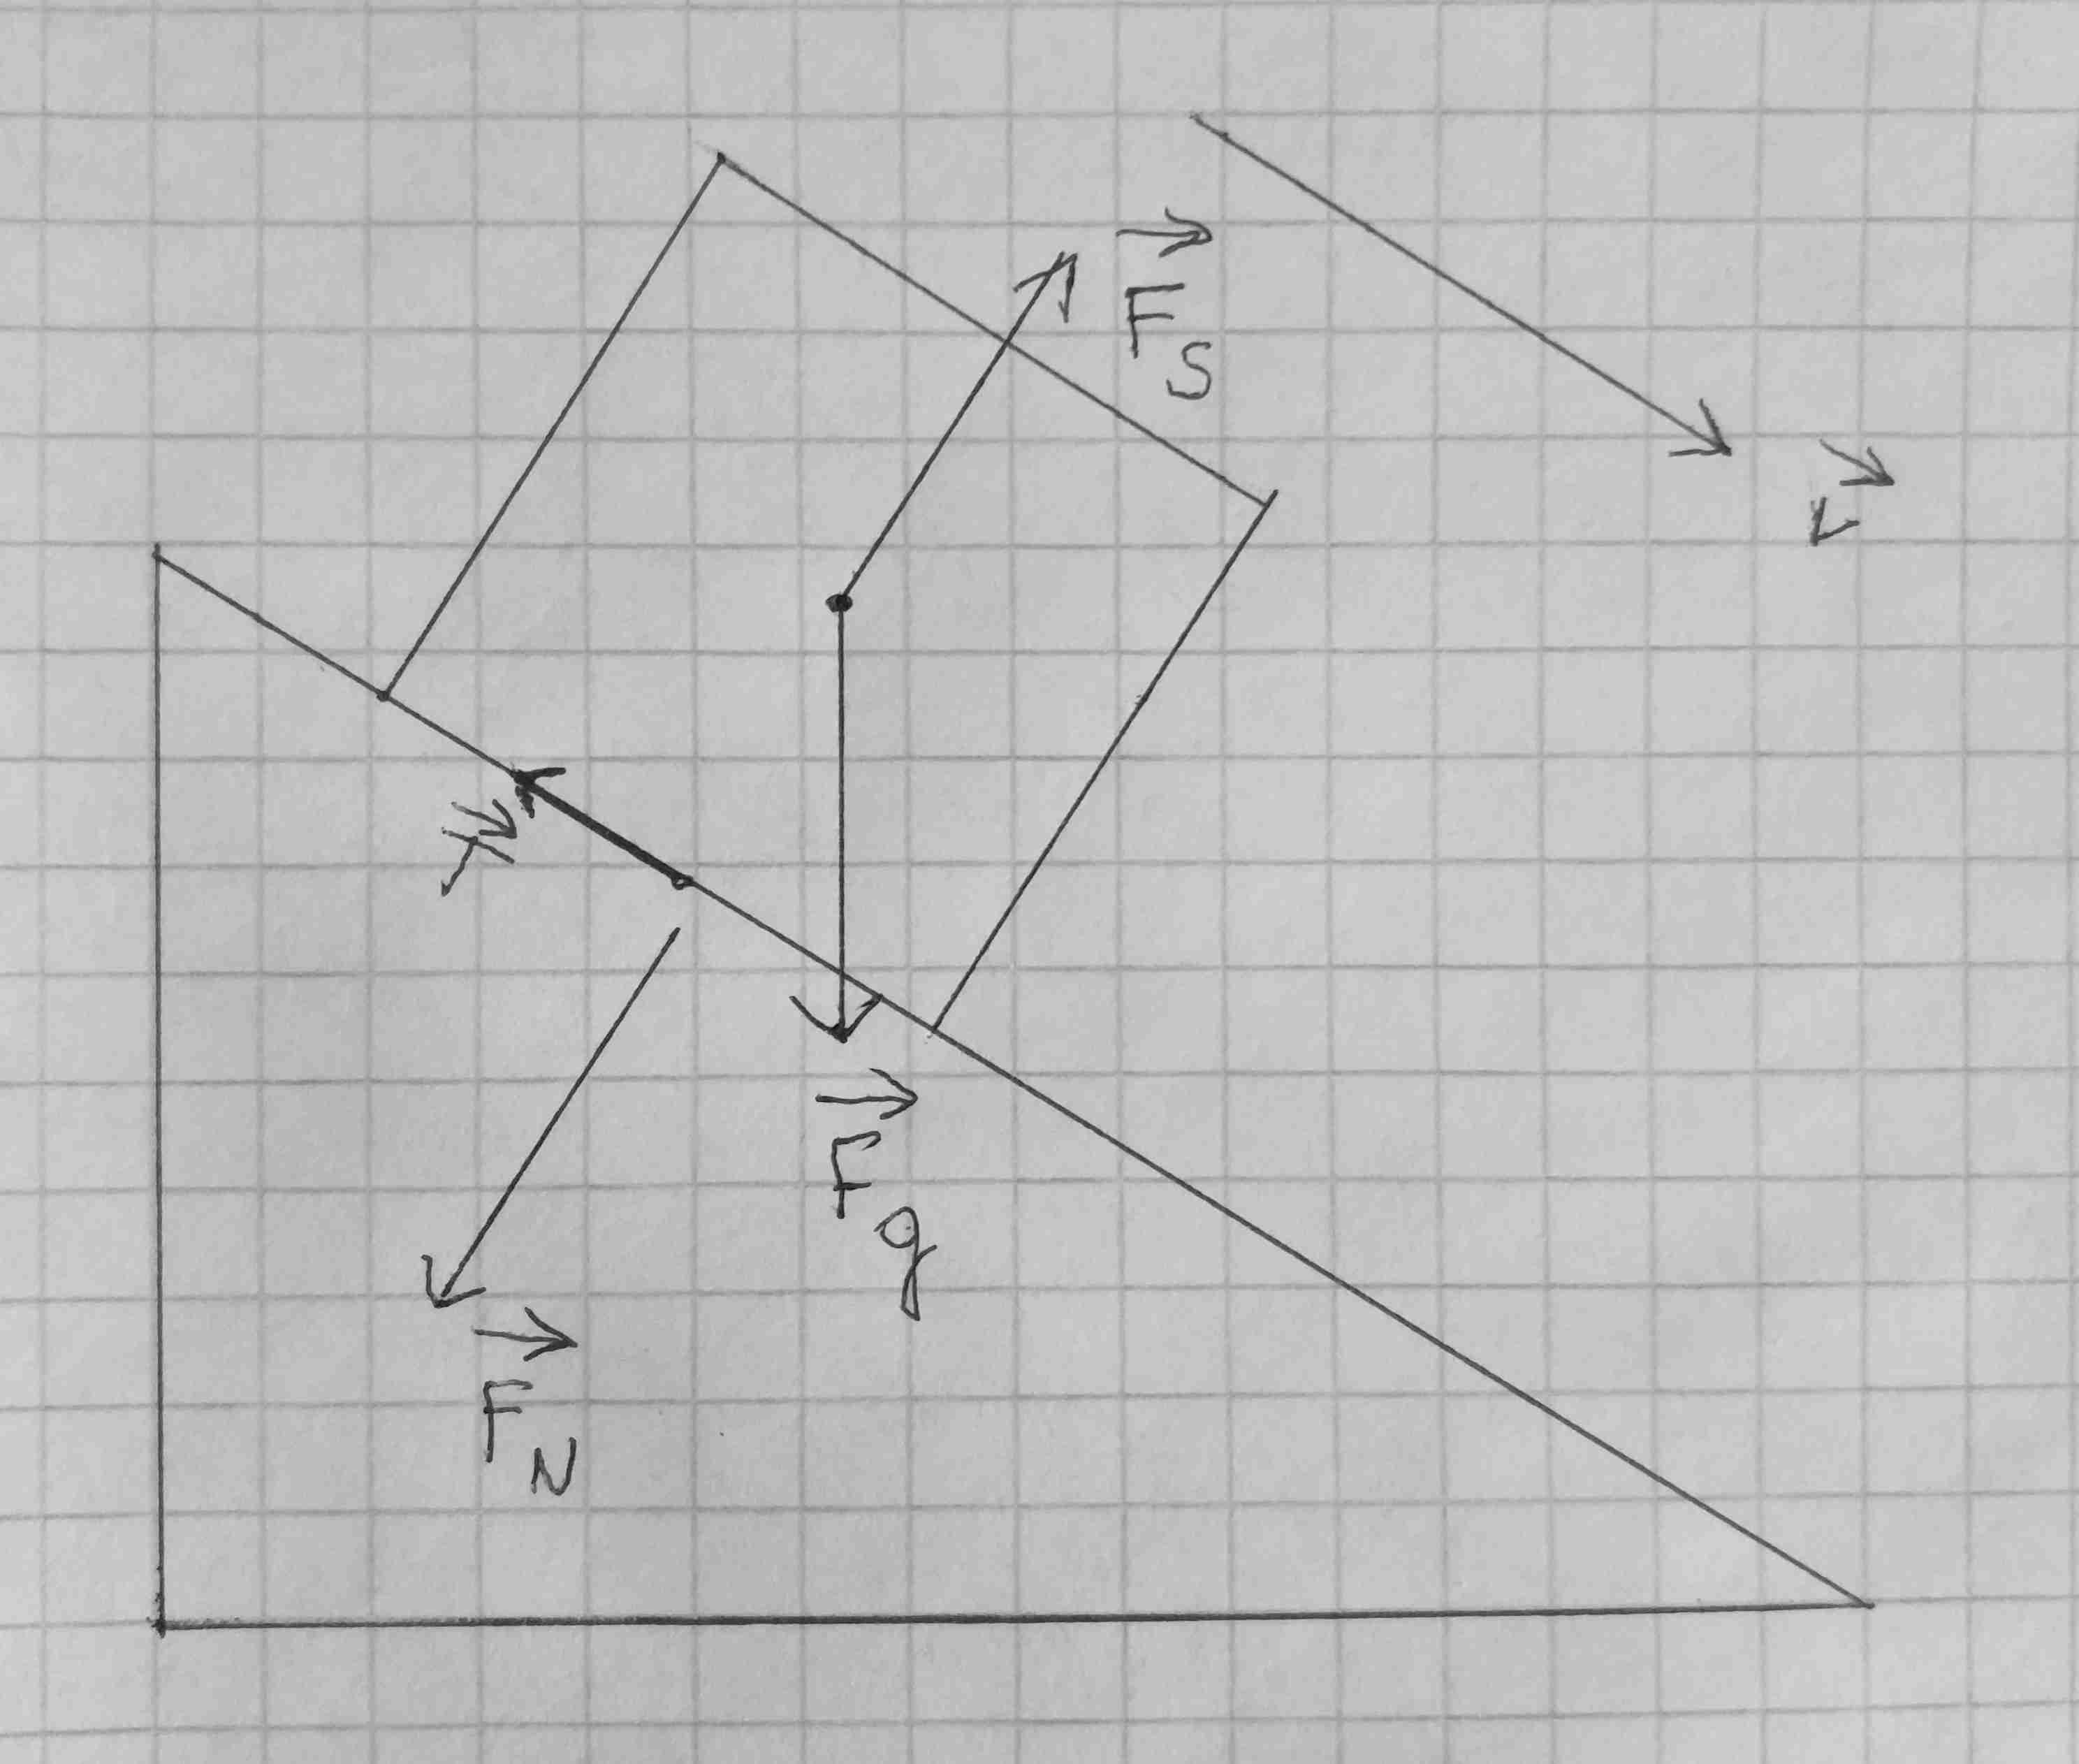 F⃗_S
v⃗
T⃗
F⃗_g
F⃗_N